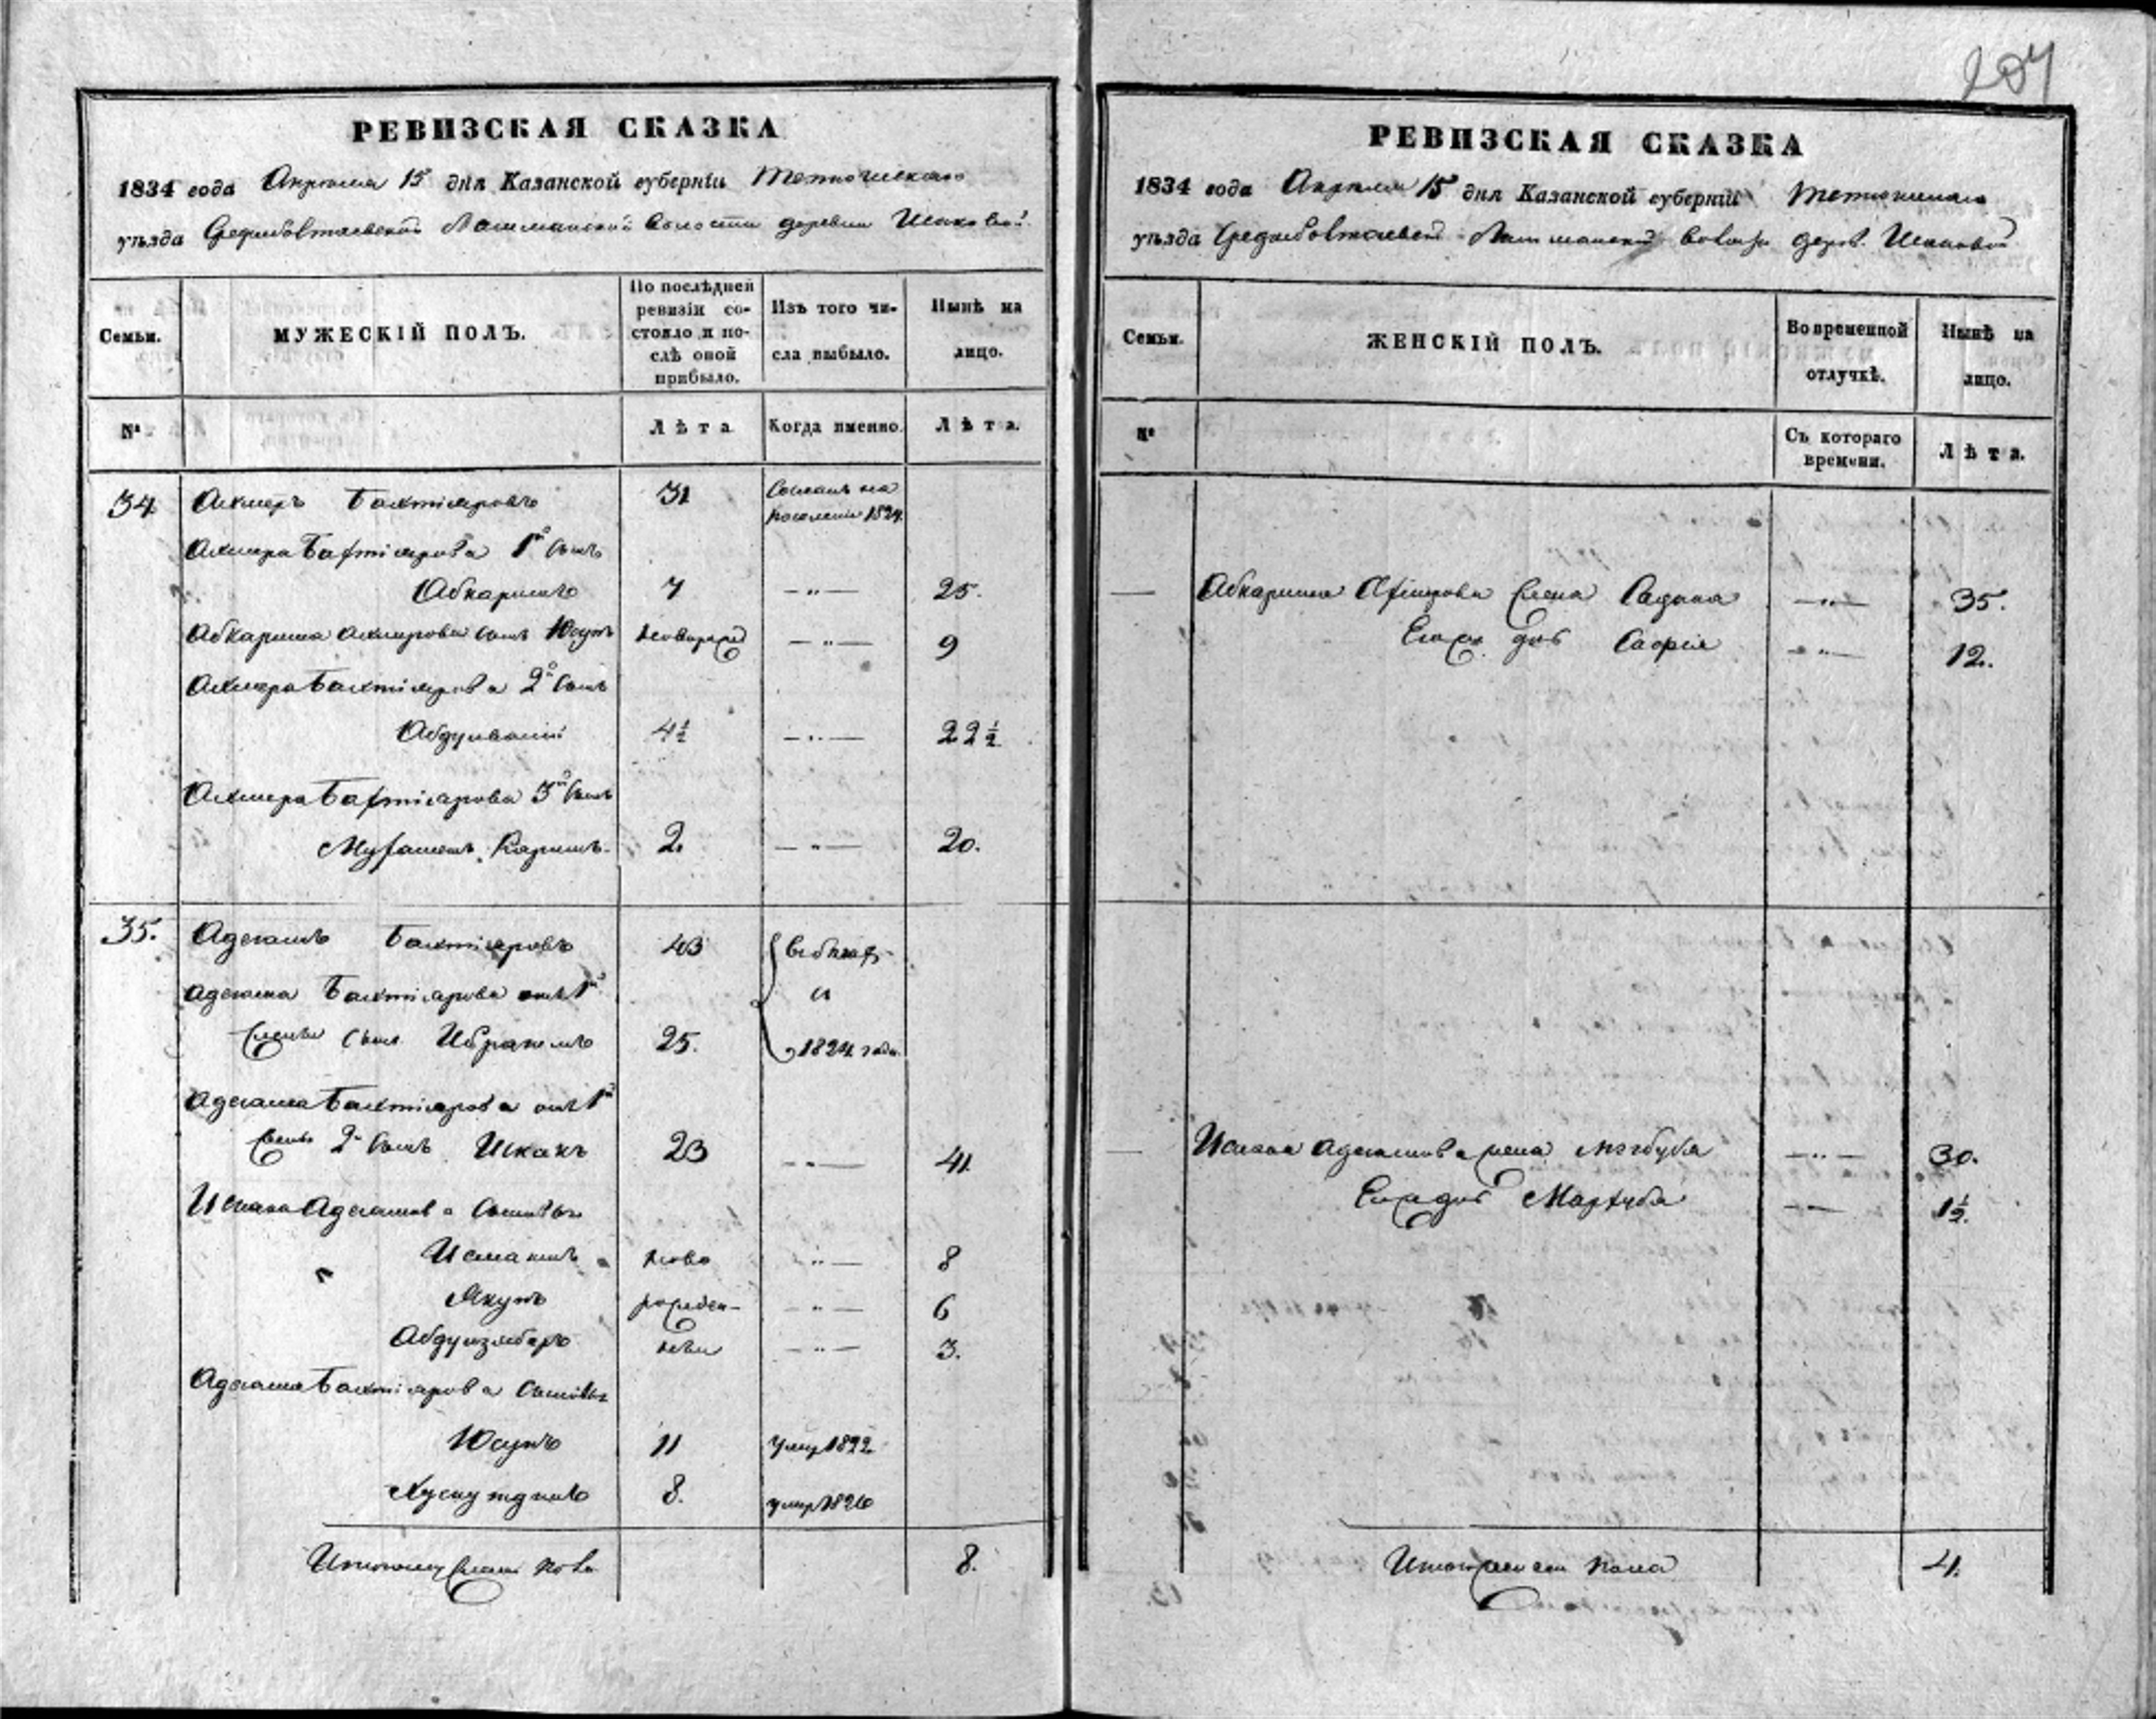 207
РЕВИЗСКАЯ СКАЗКА
1834 года Апреля 15 дня Казанской губернiи Тетюшскаго
уѣзда Лашманской волости деревни Исаковой
Семьи.
МУЖЕСКIЙ ПОЛЪ.
По послѣдней ревизiи со-
стояло и по-
слѣ оной
прибыло.
Изъ того чи-
сла выбыло.
Нынѣ на
лицо.
№
Лѣта
Когда именно.
Лѣта.
34. Ахмеръ Бахтiяровъ 31 Сосланъ на
поселенiе 1824.
Ахмера Бахтiярова 1й сынъ
Абкаримъ 7 —„— 25.
Абкарима Ахмерова сынъ Юсупъ новорожд —„— 9
Ахмера Бахтiярова 2й сынъ
4½ —„— 22½
Ахмера Бахтiярова 3й сынъ
Каримъ 2. —„— 20.
35. Адгамъ Бахтiяровъ 43
Адгама Бахтiярова отъ 1й
жены сынъ Ибрагимъ 25. 1824 года.
Адгама Бахтiярова отъ 1й
жены 2й сынъ Исхакъ 23 —„— 41.
Исхака Адгамова сыновья
ново —„— 8
Якупъ рожден- —„— 6
ные —„— 3.
Адгама Бахтiярова сыновья
Юсупъ 11 умер 1822
Хуснутдинъ 8. умер 1826
Итого муженска пола 8.
РЕВИЗСКАЯ СКАЗКА
1834 года Апреля 15 дня Казанской губернiи Тетюшскаго
уѣзда Лашманской дерев. Исаковой
Семьи.
ЖЕНСКIЙ ПОЛЪ.
Во временной
отлучкѣ.
Нынѣ на
лицо.
№
Съ котораго
времени.
Лѣта.
— Абкарима Ахмерова жена —„— 35.
Его же дочь Сафiя —„— 12.
— Исхака Адгамова жена —„— 30.
Его же дочь —„— 1½.
Итого женска пола 4.